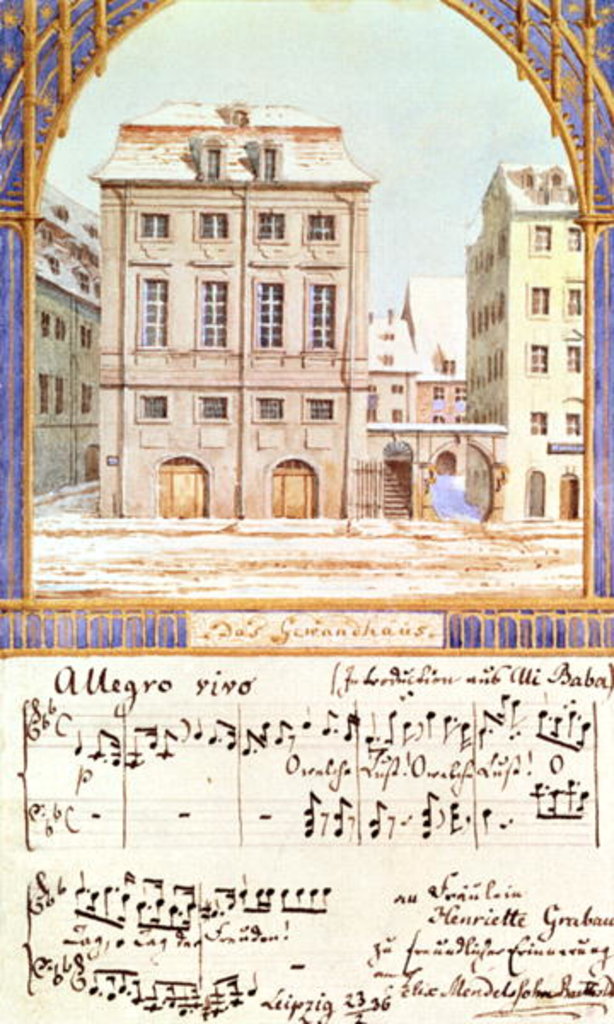 Das Gewandhaus.
Allegro vivo (Introduction aus Ali Baba)
p O welche Lust! O welche Lust! O
Tag, o Tag der Freuden!
an Fräulein
Henriette Grabau
zu freundlicher Erinnerung
an
Felix Mendelssohn Barthold
Leipzig 23/2 36